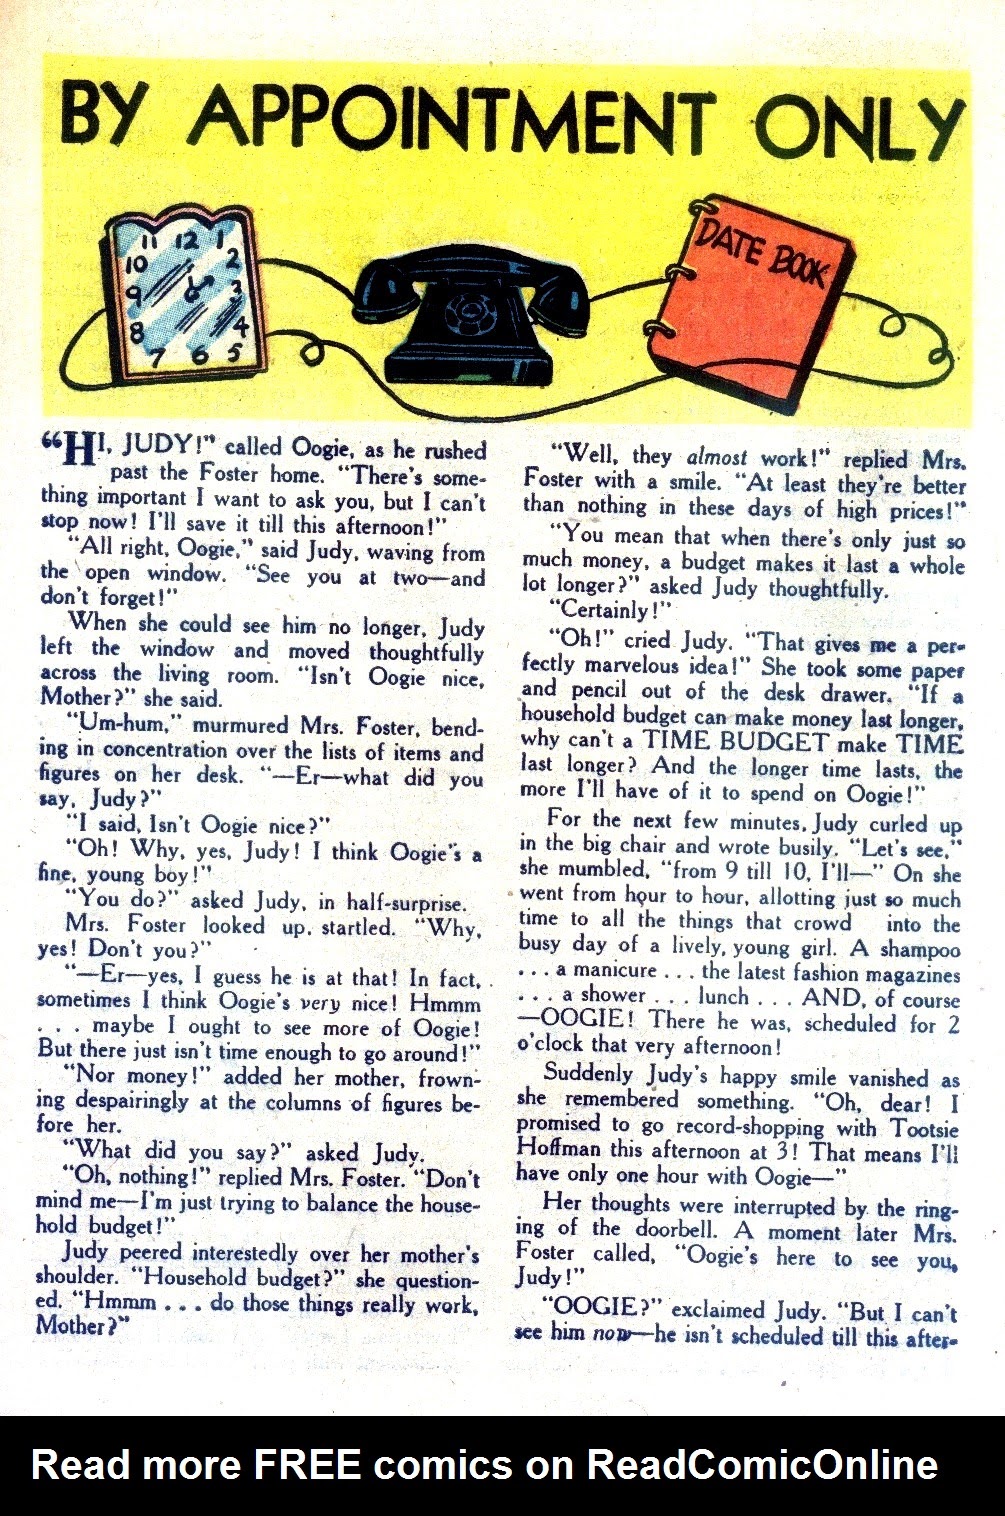 BY APPOINTMENT ONLY
11 12 1
10 2
9 3
8 4
7 6 5
DATE BOOK
"HI, JUDY!" called Oogie, as he rushed
past the Foster home. "There's some-
thing important I want to ask you, but I can't
stop now! I'll save it till this afternoon!"
"All right, Oogie," said Judy, waving from
the open window. "See you at two—and
don't forget!"
When she could see him no longer, Judy
left the window and moved thoughtfully
across the living room. "Isn't Oogie nice,
Mother?" she said.
"Um-hum," murmured Mrs. Foster, bend-
ing in concentration over the lists of items and
figures on her desk. "—Er—what did you
say, Judy?"
"I said, Isn't Oogie nice?"
"Oh! Why, yes, Judy! I think Oogie's a
fine, young boy!"
"You do?" asked Judy, in half-surprise.
Mrs. Foster looked up, startled. "Why,
yes! Don't you?"
"—Er—yes, I guess he is at that! In fact,
sometimes I think Oogie's very nice! Hmmm
. . . maybe I ought to see more of Oogie!
But there just isn't time enough to go around!"
"Nor money!" added her mother, frown-
ing despairingly at the columns of figures be-
fore her.
"What did you say?" asked Judy.
"Oh, nothing!" replied Mrs. Foster. "Don't
mind me—I'm just trying to balance the house-
hold budget!"
Judy peered interestedly over her mother's
shoulder. "Household budget?" she question-
ed. "Hmmm . . . do those things really work,
Mother?"
"Well, they almost work!" replied Mrs.
Foster with a smile. "At least they're better
than nothing in these days of high prices!"
"You mean that when there's only just so
much money, a budget makes it last a whole
lot longer?" asked Judy thoughtfully.
"Certainly!"
"Oh!" cried Judy. "That gives me a per-
fectly marvelous idea!" She took some paper
and pencil out of the desk drawer. "If a
household budget can make money last longer,
why can't a TIME BUDGET make TIME
last longer? And the longer time lasts, the
more I'll have of it to spend on Oogie!"
For the next few minutes, Judy curled up
in the big chair and wrote busily. "Let's see,"
she mumbled, "from 9 till 10, I'll—" On she
went from hour to hour, allotting just so much
time to all the things that crowd into the
busy day of a lively, young girl. A shampoo
. . . a manicure . . . the latest fashion magazines
. . . a shower . . . lunch . . . AND, of course
—OOGIE! There he was, scheduled for 2
o'clock that very afternoon!
Suddenly Judy's happy smile vanished as
she remembered something. "Oh, dear! I
promised to go record-shopping with Tootsie
Hoffman this afternoon at 3! That means I'll
have only one hour with Oogie—"
Her thoughts were interrupted by the ring-
ing of the doorbell. A moment later Mrs.
Foster called, "Oogie's here to see you,
Judy!"
"OOGIE?" exclaimed Judy. "But I can't
see him now—he isn't scheduled till this after-
Read more FREE comics on ReadComicOnline